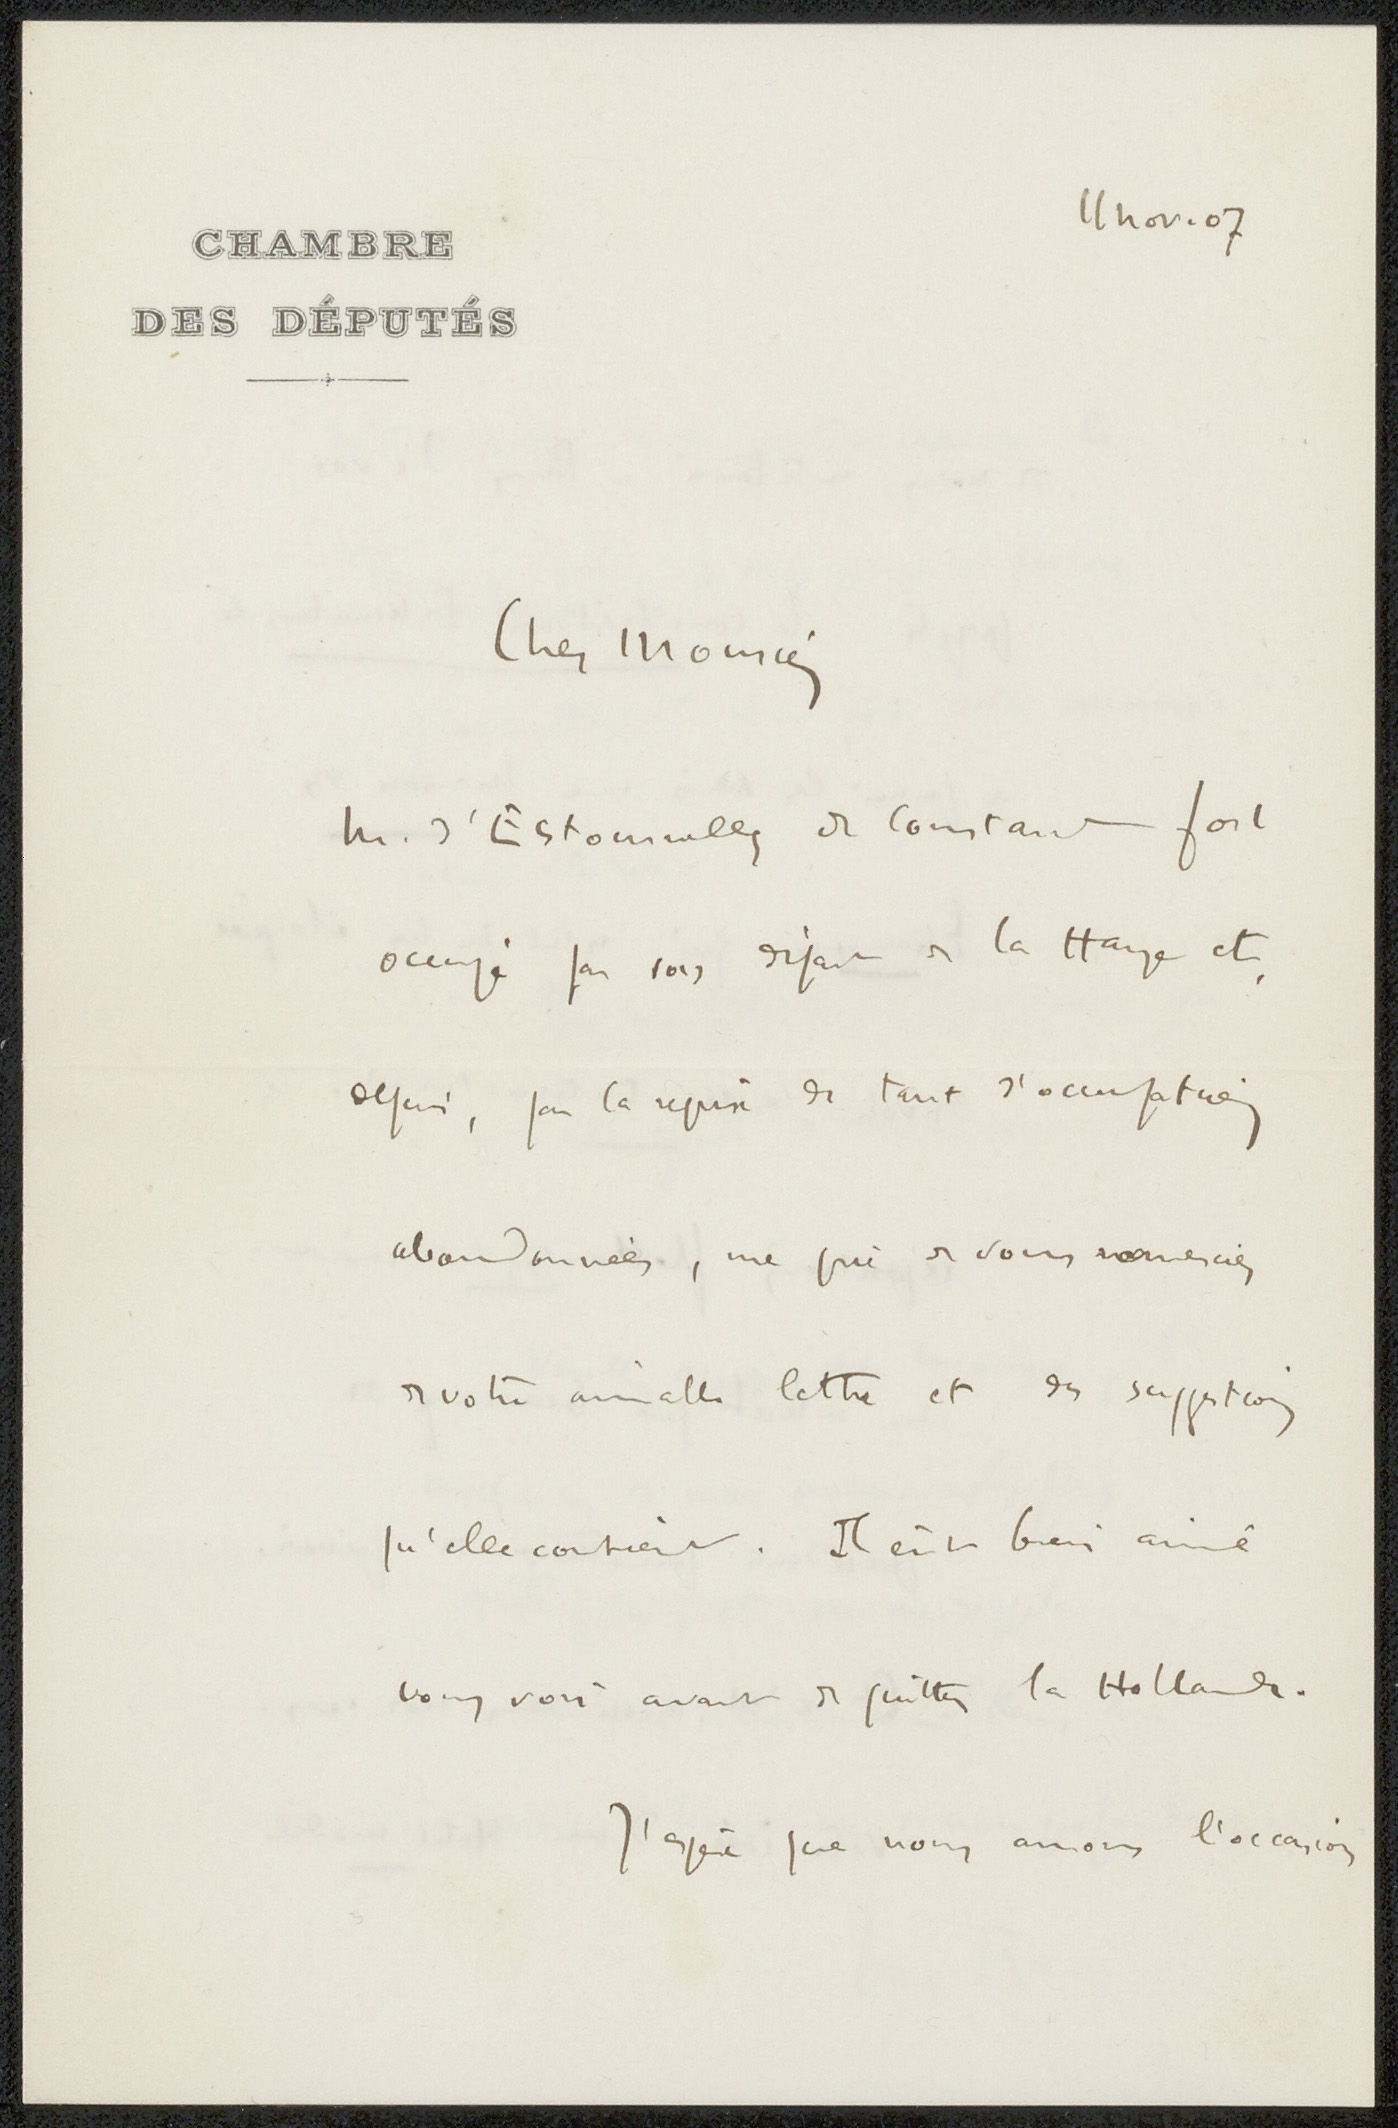 CHAMBRE
DES DÉPUTÉS
11 nov. 07
Cher Monsieur
M. d'Estournelles de Constant fort
occupé par son départ de la Haye et,
depuis, par la reprise de tant d'occupations
abandonnées, me prie de vous remercier
de votre aimable lettre et des suggestions
qu'elle contient. Il eût bien aimé
vous voir avant de quitter la Hollande.
J'espère que nous aurons l'occasion